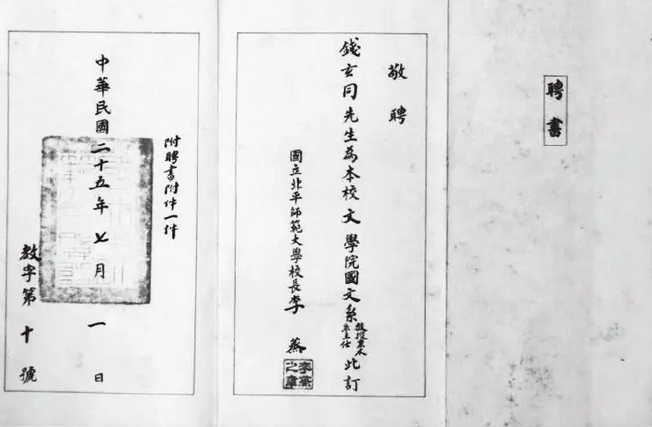 聘書
敬聘
錢玄同先生為本校文學院國文系教授兼本系主任此訂
國立北平師範大學校長李蒸
李蒸之章
附聘書附件一件
中華民國二十五年七月一日
教字第十號